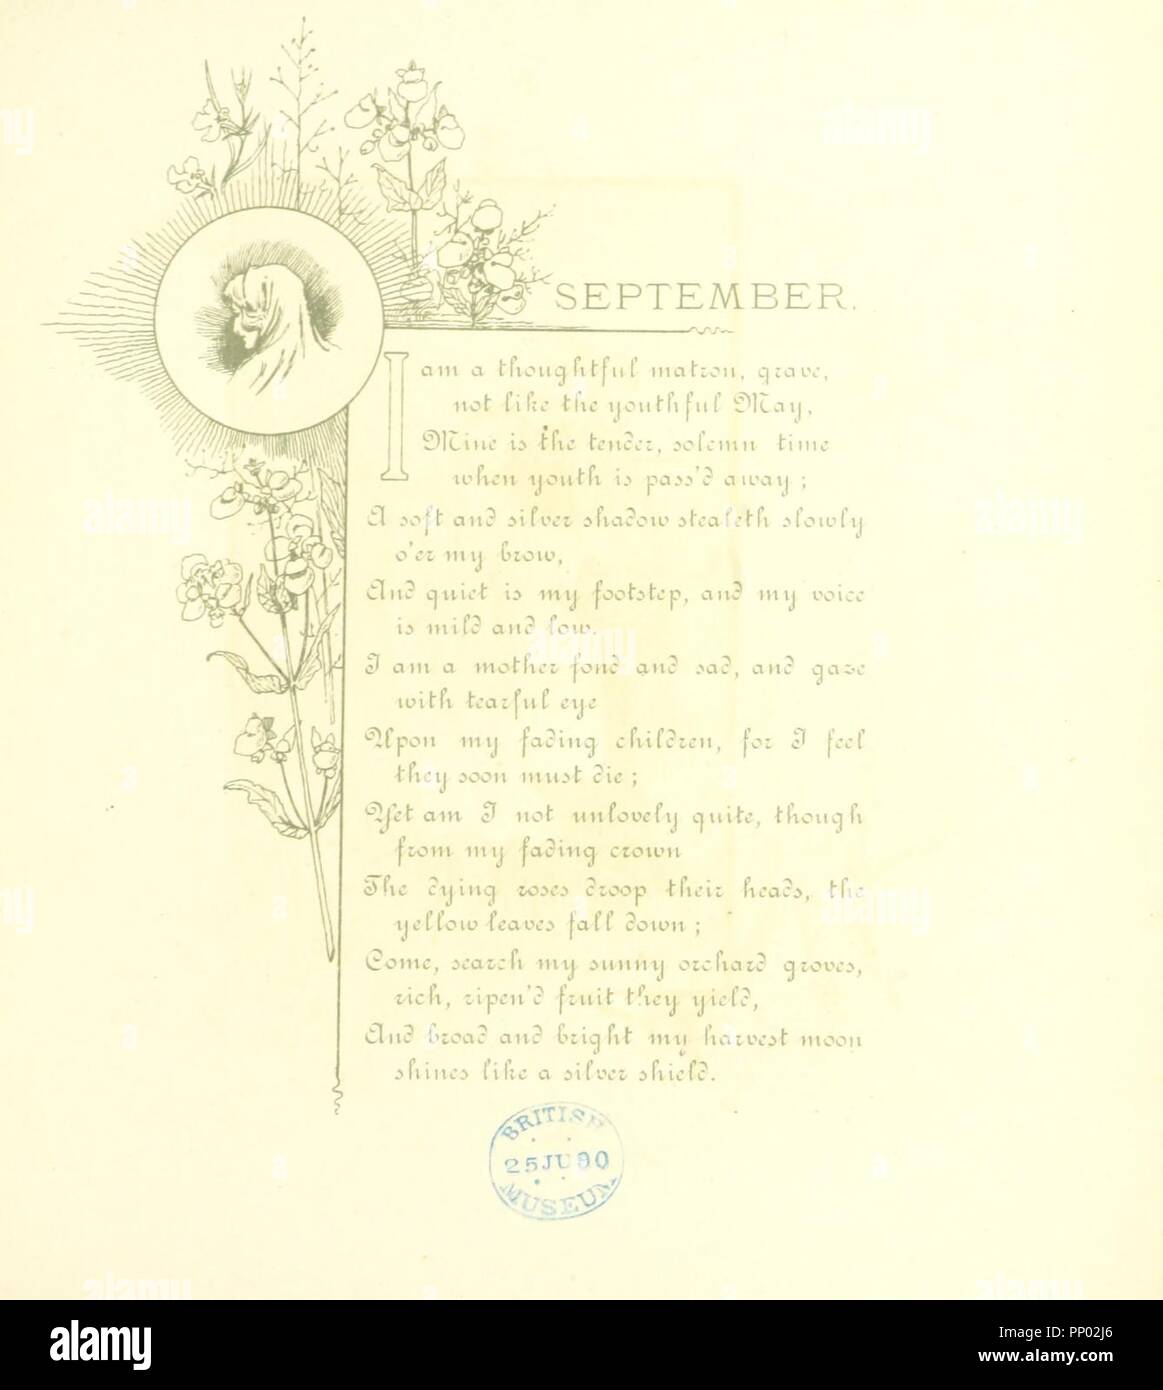 SEPTEMBER.
I am a thoughtful matron, grave,
not like the youthful May,
Mine is the tender, solemn time
when youth is pass'd away ;
A soft and silver shadow stealeth slowly
o'er my brow,
And quiet is my footstep, and my voice
is mild and low.
I am a mother fond and sad, and gaze
with tearful eye
Upon my fading children, for I feel
they soon must die ;
Yet am I not unlovely quite, though
from my fading crown
The dying roses droop their heads, the
yellow leaves fall down ;
Come, search my sunny orchard groves,
rich, ripen'd fruit they yield,
And broad and bright my harvest moon
shines like a silver shield.
BRITISH
25JU90
MUSEUM
alamy
Image ID: PP02J6
www.alamy.com